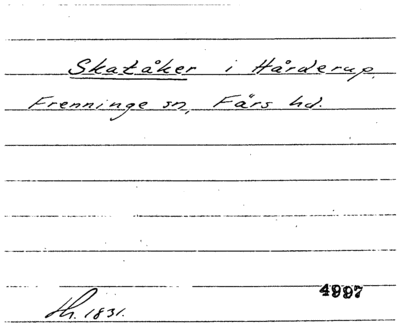 Skatåker i Hårderup,
Frenninge sn, Färs hd.
4997
Th. 1831.